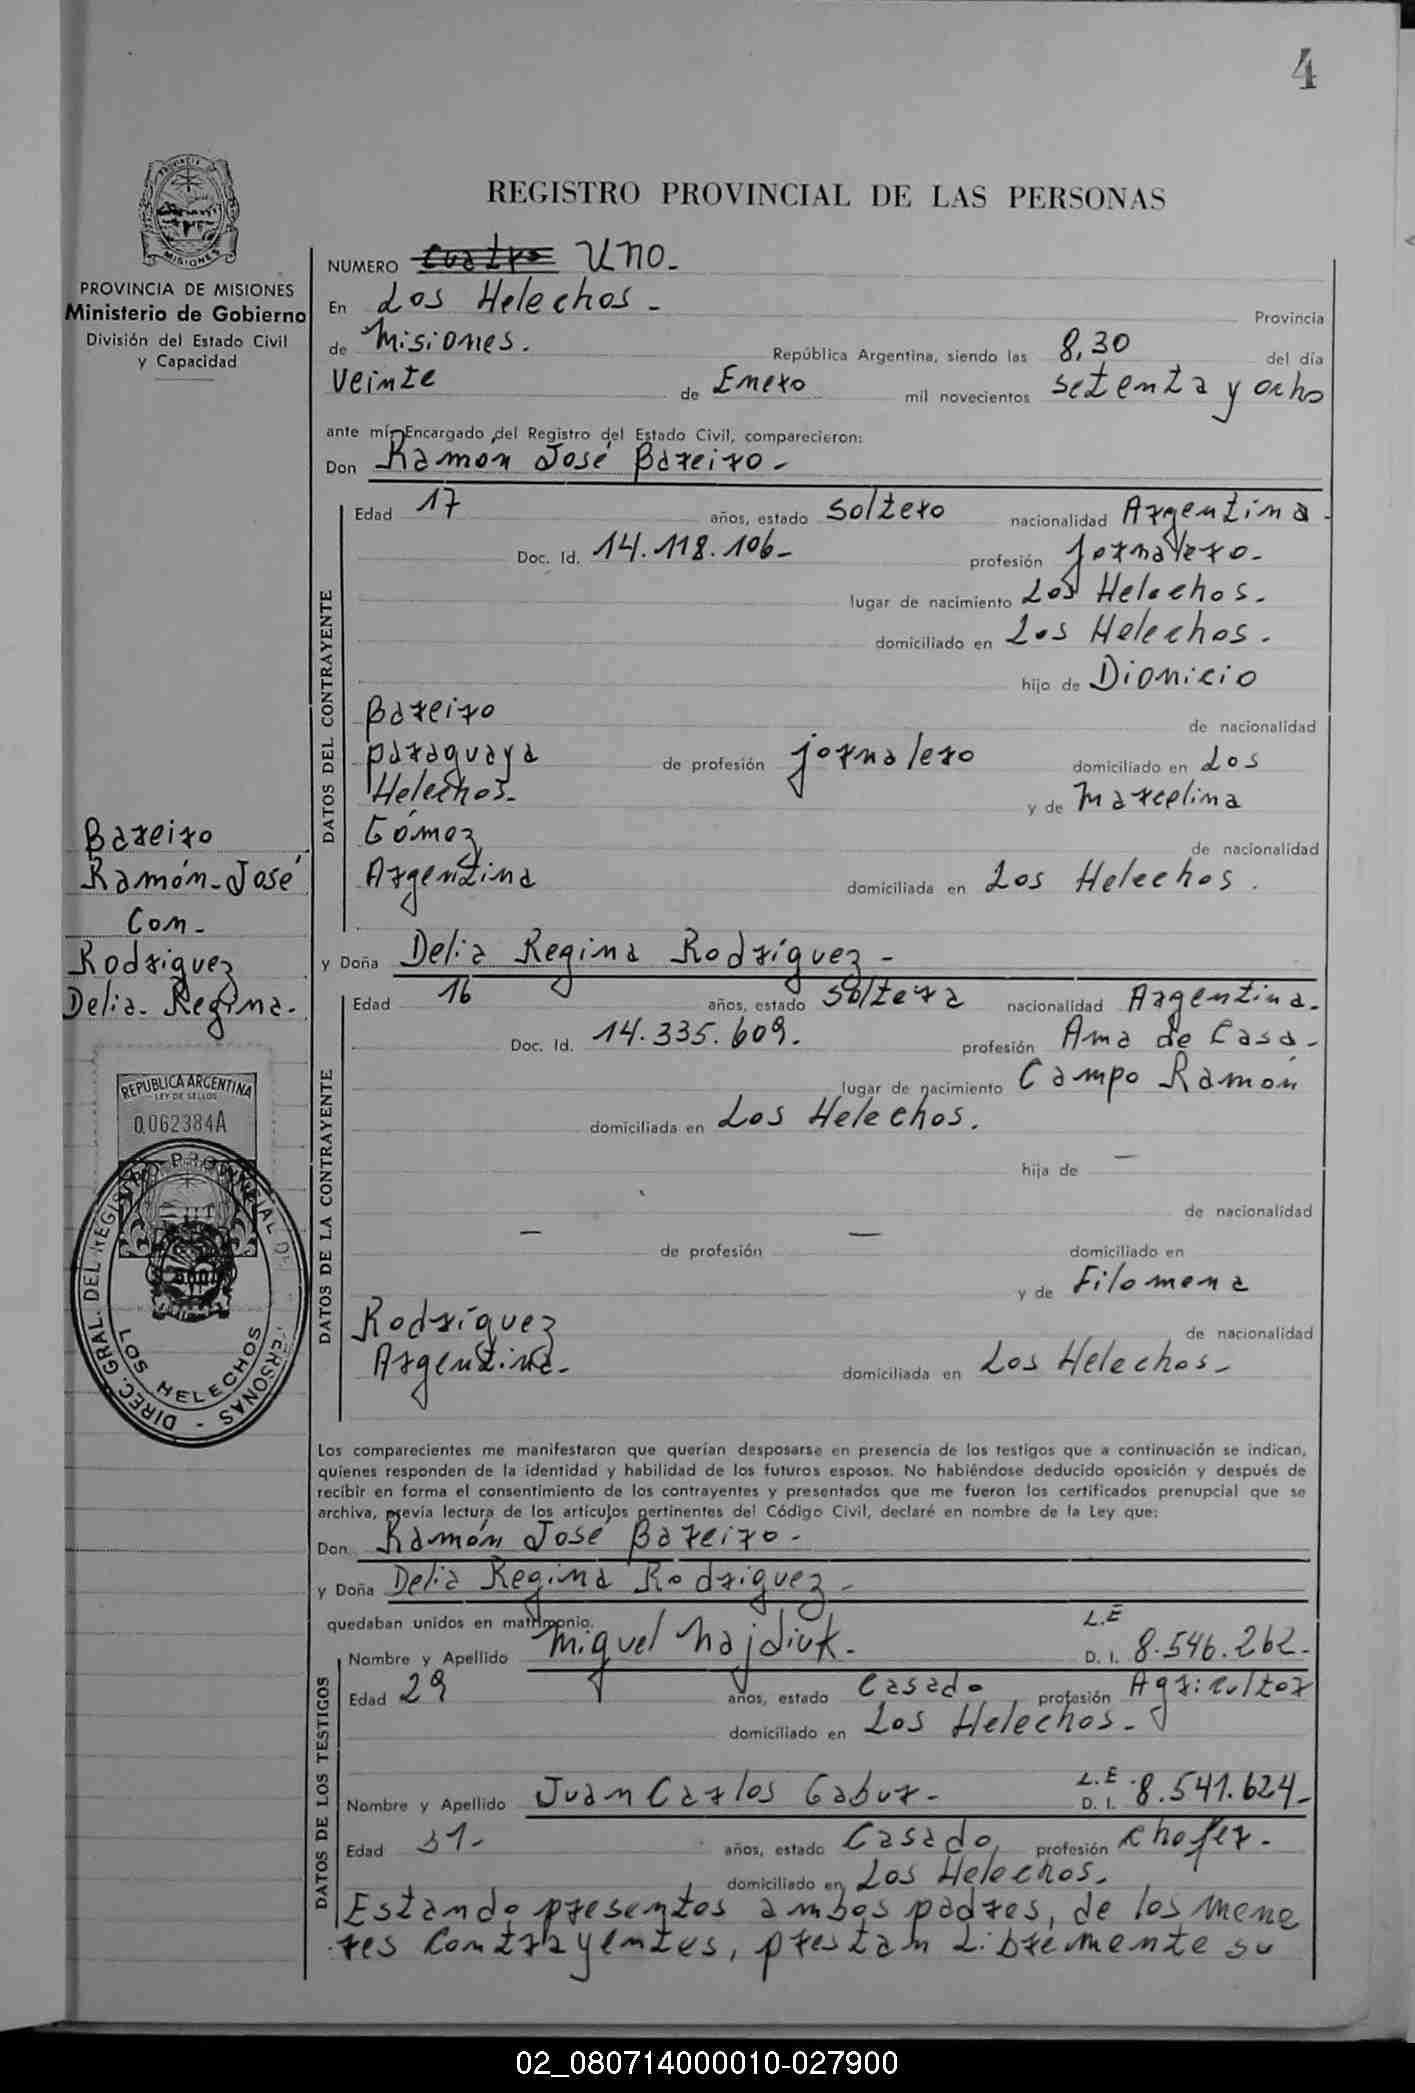 4
REGISTRO PROVINCIAL DE LAS PERSONAS
MISIONES
PROVINCIA DE MISIONES
Ministerio de Gobierno
División del Estado Civil
y Capacidad
NUMERO Cuatro Uno.-
En Los Helechos.- Provincia
de Misiones. República Argentina, siendo las 8,30 del día
Veinte de Enero mil novecientos setenta y ocho
ante mí, Encargado del Registro del Estado Civil, comparecieron:
Don Ramon José Bareiro.-
DATOS DEL CONTRAYENTE
Edad 17 años, estado soltero nacionalidad Argentina.
Doc. Id. 14.118.106.- profesión jornalero.-
lugar de nacimiento Los Helechos.-
domiciliado en Los Helechos.
hijo de Dionicio
Bareiro de nacionalidad
paraguaya de profesión jornalero domiciliado en Los
Helechos.- y de Marcelina
Gómez de nacionalidad
Argentina domiciliada en Los Helechos.
Bareiro
Ramón-José
Con.
Rodriguez
Delia- Regina.
y Doña Delia Regina Rodríguez.-
DATOS DE LA CONTRAYENTE
Edad 16 años, estado soltera nacionalidad Argentina.
Doc. Id. 14.335.609. profesión Ama de Casa.-
lugar de nacimiento Campo Ramón
domiciliada en Los Helechos.
hija de —
de nacionalidad
— de profesión — domiciliado en
y de Filomena
Rodríguez de nacionalidad
Argentina.- domiciliada en Los Helechos.-
REPUBLICA ARGENTINA
LEY DE SELLOS
0.062384A
DIREC. GRAL. DEL REGISTRO PROVINCIAL DE PERSONAS -
LOS HELECHOS
Los comparecientes me manifestaron que querían desposarse en presencia de los testigos que a continuación se indican,
quienes responden de la identidad y habilidad de los futuros esposos. No habiéndose deducido oposición y después de
recibir en forma el consentimiento de los contrayentes y presentados que me fueron los certificados prenupcial que se
archiva, previa lectura de los artículos pertinentes del Código Civil, declaré en nombre de la Ley que:
Don Ramón José Bareiro.-
y Doña Delia Regina Rodriguez.-
quedaban unidos en matrimonio.
DATOS DE LOS TESTIGOS
Nombre y Apellido Miguel Najdiuk.- L.E D. I. 8.546.262.-
Edad 29 años, estado Casado profesión Agricultor
domiciliado en Los Helechos.-
Nombre y Apellido Juan Carlos Gabur.- L.E D. I. 8.541.624.-
Edad 31.- años, estado Casado, profesión chofer.-
domiciliado en Los Helechos.
Estando presentos ambos padres, de los mene
res Contrayentes, prestan Libremente su
02_080714000010-027900